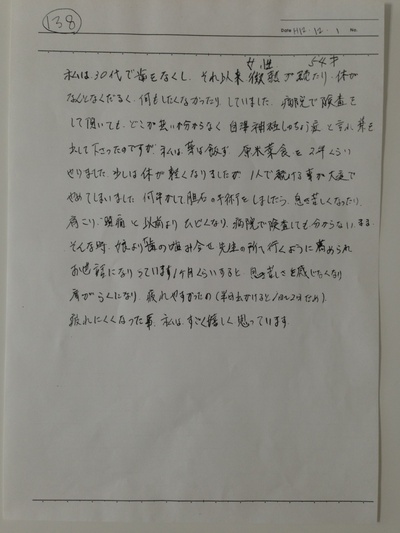 138
Date H12.12.1 No.
女性 54才
私は30代で歯をなくし、それ以来微熱が続たり、体が
なんとなくだるく、何もしたくなかったり、していました。病院で検査を
して頂いても、どこが悪いか分からなく自律神経しっちょう症と言れ、薬を
出して下さったのですが、私は薬は飯ず、原米菜食を2年くらい
やりました。少しは体が軽くなりましたが、1人で続ける事が大変で
やめてしまいました。何年かして胆石の手術をしましたら、息が苦しくなったり、
肩こり、頭痛と以前よりひどくなり、病院で検査しても分からないまま
そんな時、娘より歯の噛み合せ先生の所へ行くように薦められ
お世話になりっています1ヶ月くらいすると息の苦しさを感じなくなり
肩がらくになり、疲れやすかったの(半日出かけると1日〜2日だめ)
疲れにくくなった事、私は、すごく嬉しく思っています。